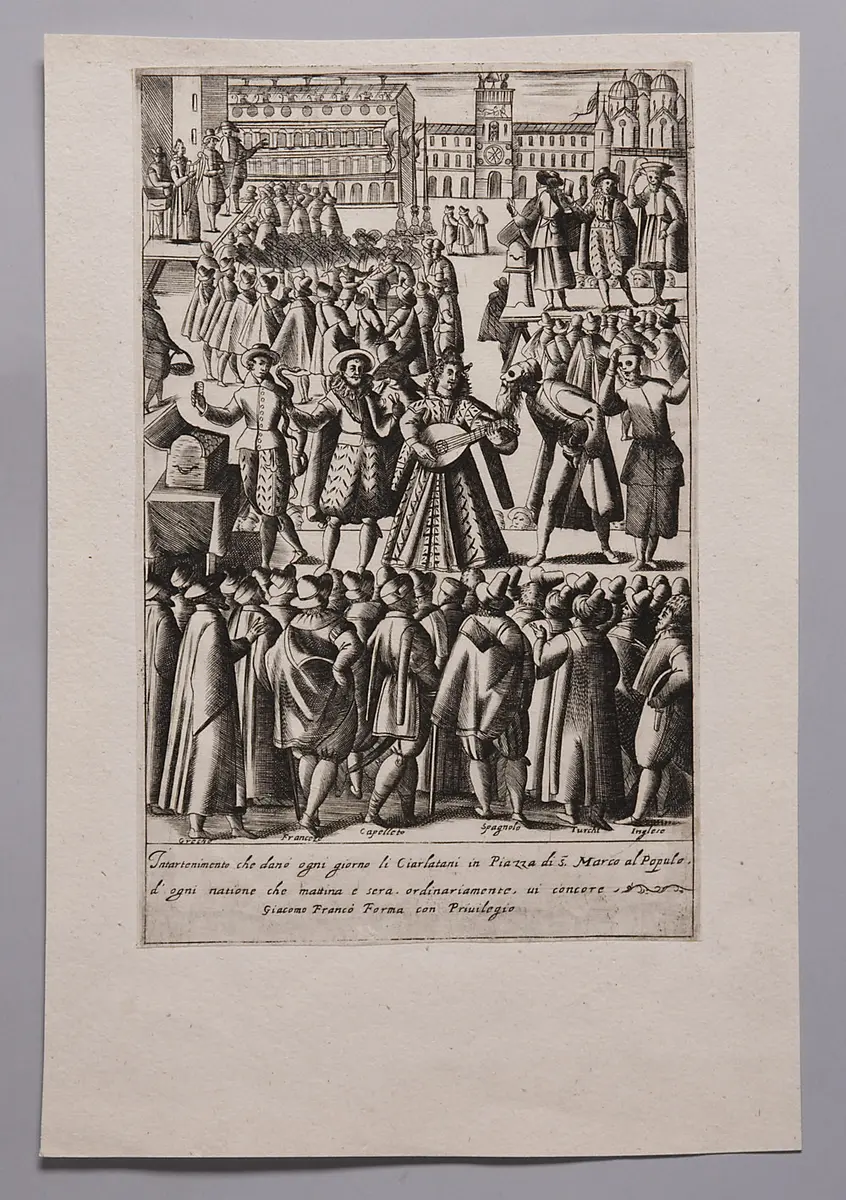 Greche France Capelleto Spagnolo Turchi Inglese
Intartenimento che dano ogni giorno li Ciarlatani in Piazza di s̃. Marco al Populo,
d'ogni natione che mattina e sera. ordinariamente. ui concore
Giacomo Franco Forma con Priuilegio